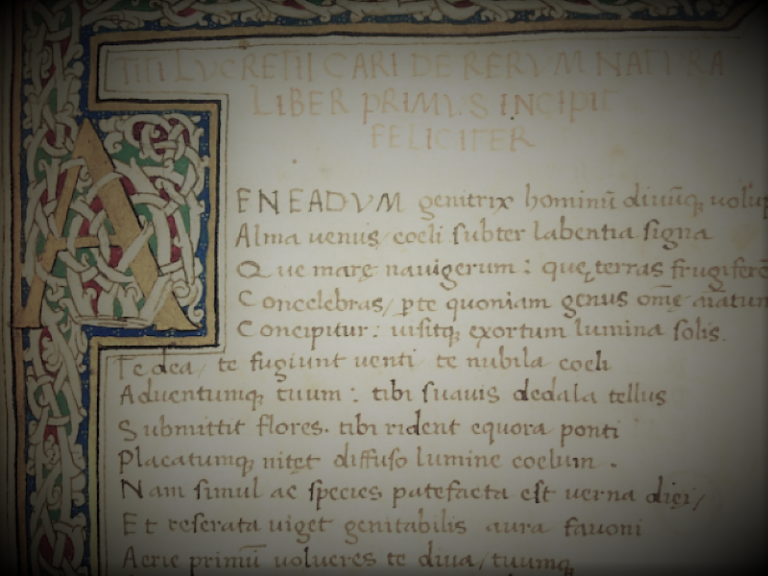 TITI LVCRETII CARI DE RERVM NATVRA
LIBER PRIMVS INCIPIT
FELICITER
AENEADVM genitrix hominū diuūq; uolup
Alma uenus, coeli subter labentia signa
Que mare nauigerum: quę terras frugiferē
Concelebras, ꝑ te quoniam genus omē aīatum
Concipitur: uisitq; exortum lumina solis.
Te dea, te fugiunt uenti te nubila coeli
Aduentumq; tuum: tibi suauis dedala tellus
Submittit flores. tibi rident equora ponti
Placatumq; nitet diffuso lumine coelum.
Nam simul ac species patefacta est uerna diei/
Et reserata uiget genitabilis aura fauoni
Aerie primū uolucres te diua, tuumq;